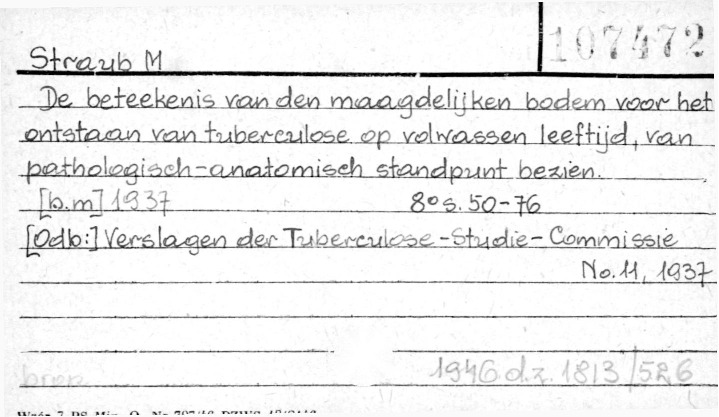 107472
Straub M
De beteekenis van den maagdelijken bodem voor het
ontstaan van tuberculose op volwassen leeftijd, van
pathologisch-anatomisch standpunt bezien.
[b.m] 1937 8° s. 50-76
[Odb:] Verslagen der Tuberculose-Studie-Commissie
No. 11, 1937
1946 d.z. 1813/526
brosz